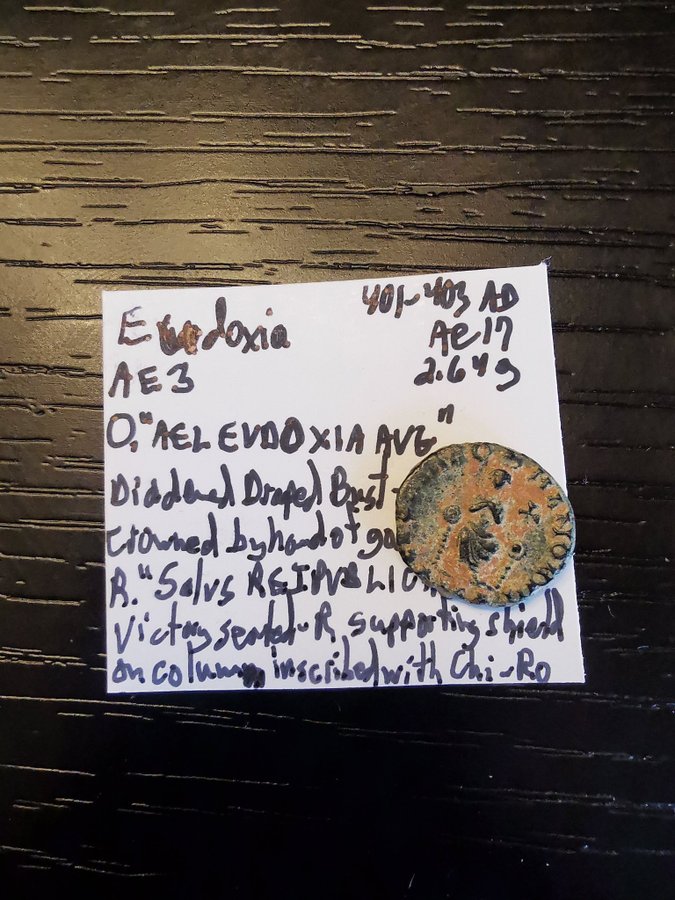 Eudoxia
401-403 AD
AE3
AE17
2.64g
O. "AEL EVDOXIA AVG"
Diademed Draped Bust-
Crowned by hand of
R. "Salvs REIPVBLIC
Victory seated-R supporting shield
on column inscribed with Chi-Ro